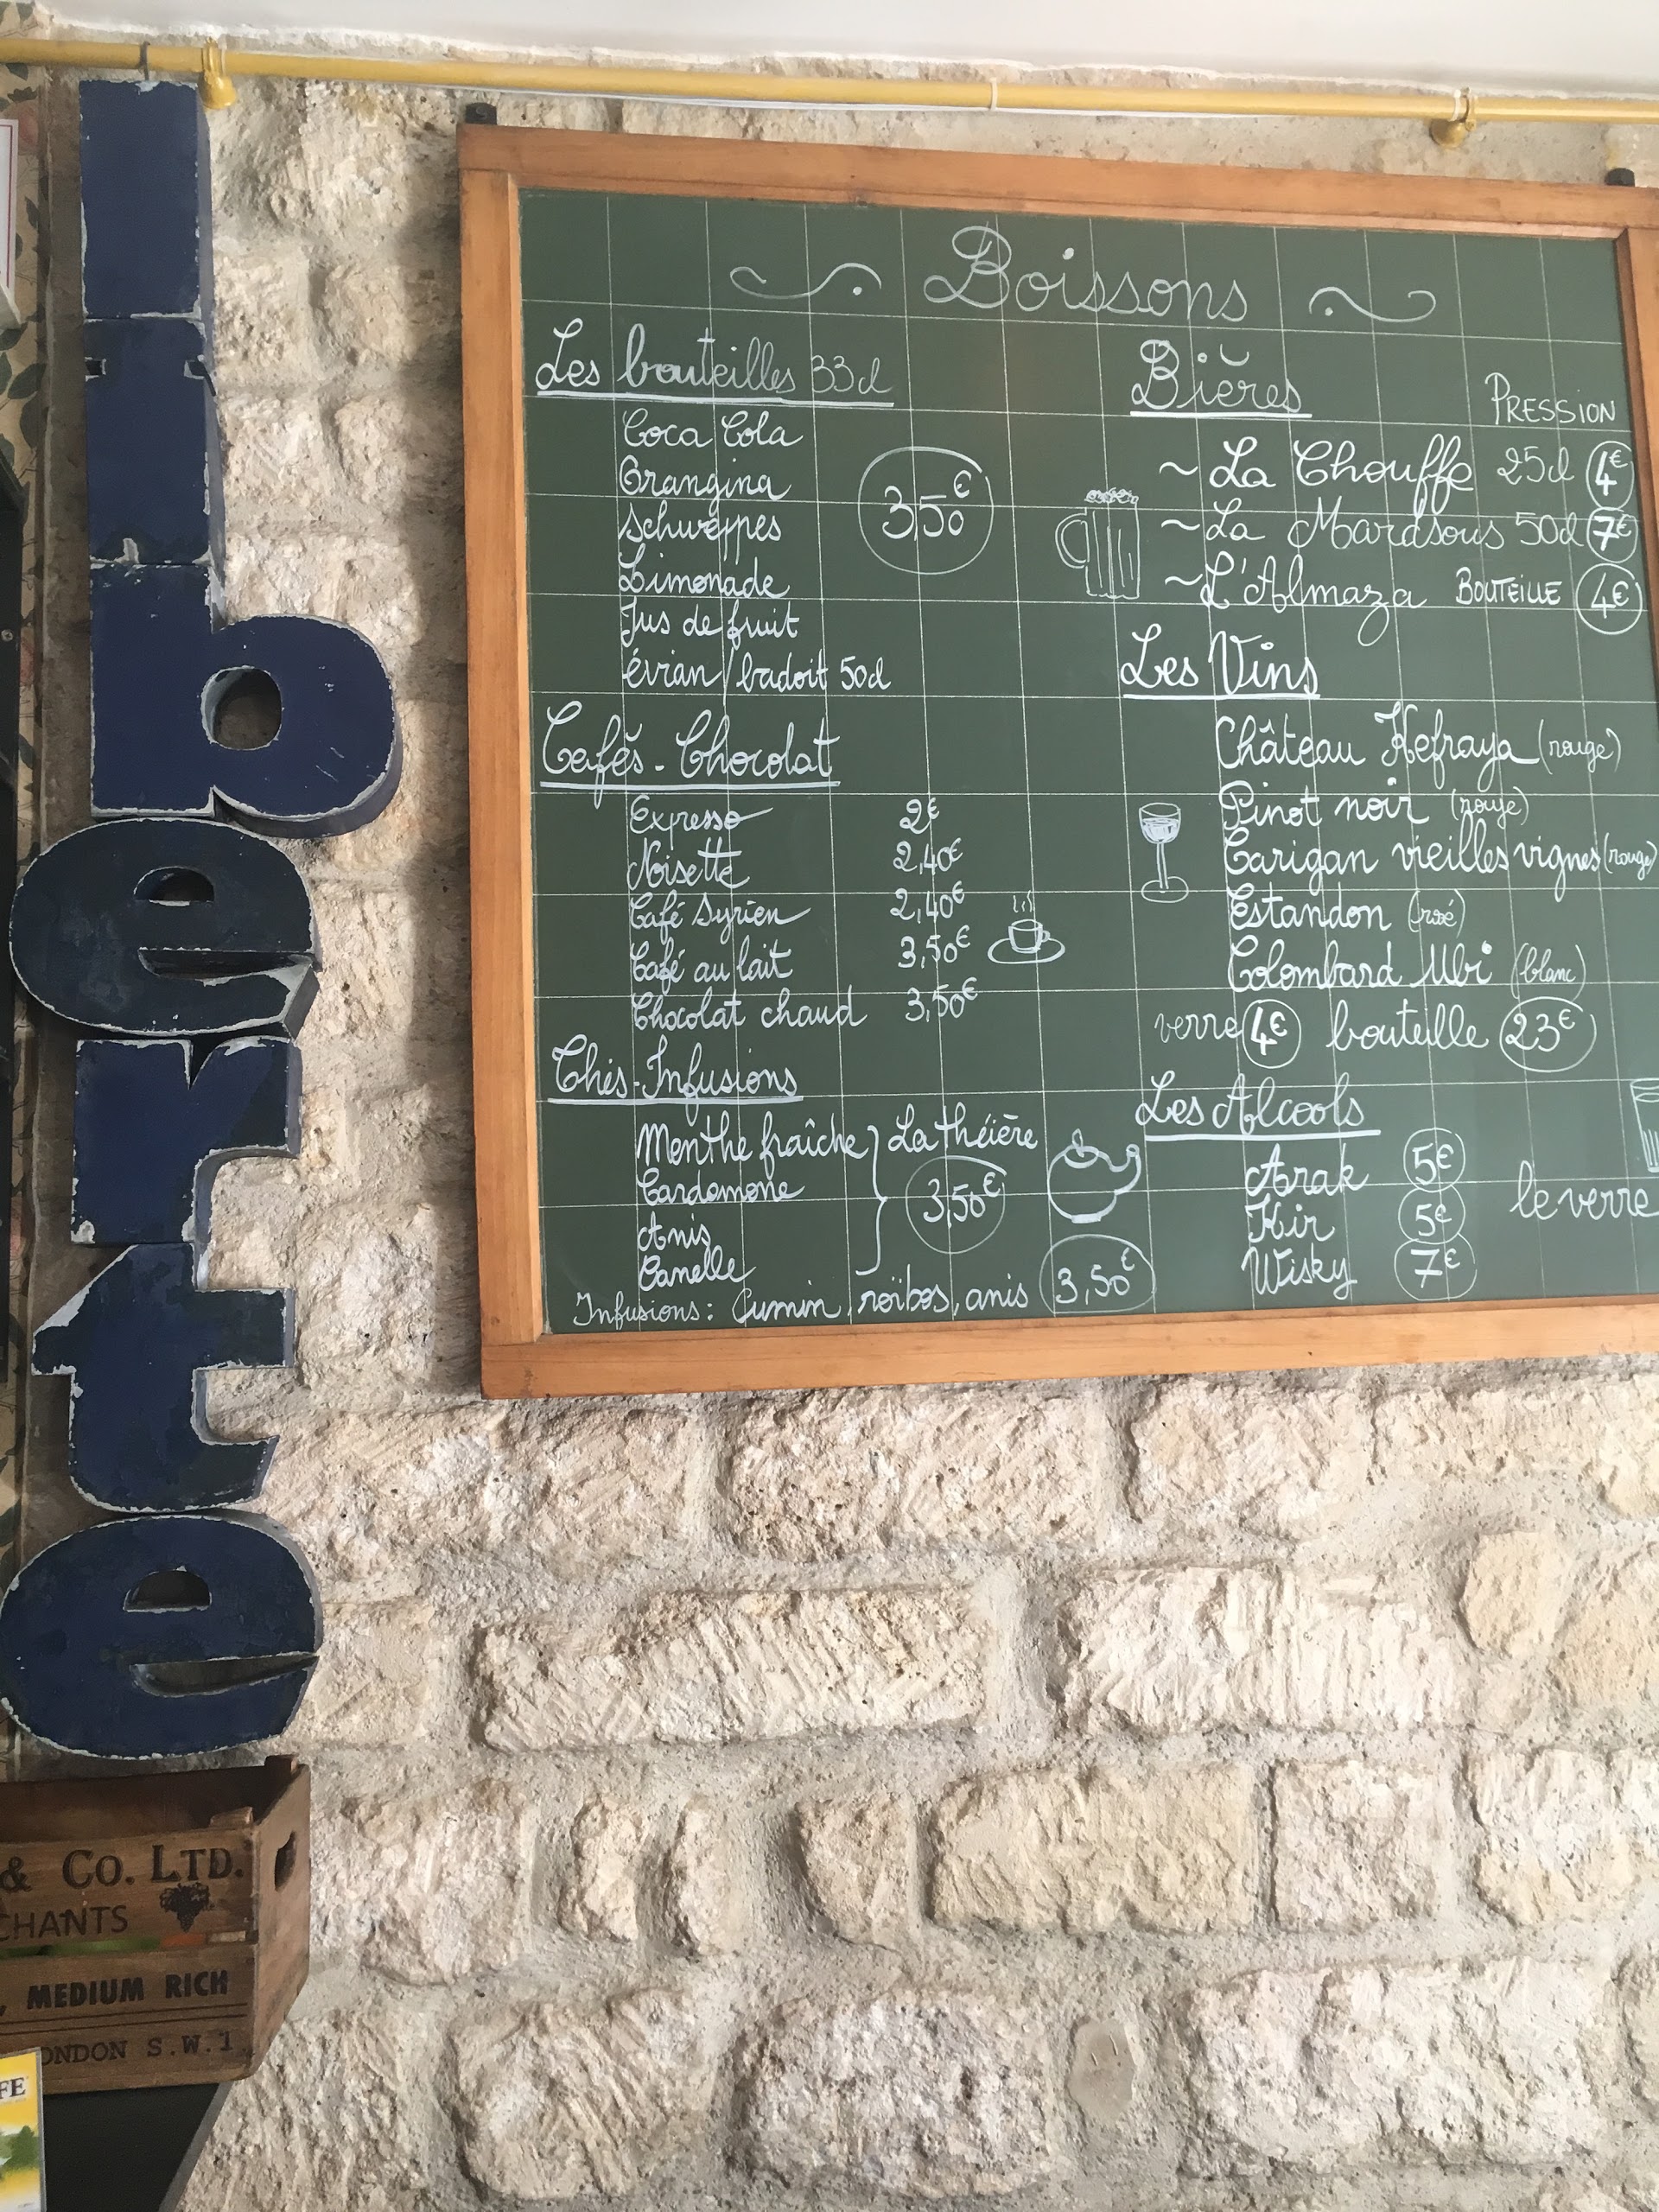 liberte
Boissons
Les bouteilles 33cl
Coca Cola
Orangina
Schweppes
Limonade
Jus de fruit
évian/badoit 50cl
3,50€
Cafés - Chocolat
Expresso 2€
Noisette 2,40€
Café Syrien 2,40€
Café au lait 3,50€
Chocolat chaud 3,50€
Thés-Infusions
Menthe fraîche
Cardomone
Anis
Canelle
La théière
3,50€
Infusions: Cumin, roïbos, anis 3,50€
Bières
PRESSION
~ La Chouffe 25cl 4€
~ La Mardsous 50cl 7€
~ L'Almaza BOUTEILLE 4€
Les Vins
Château Kefraya (rouge)
Pinot noir (rouge)
Carigan vieilles vignes (rouge)
Estandon (rosé)
Colombard Ubi (blanc)
verre 4€ bouteille 23€
Les Alcools
Arak 5€
Kir 5€
Wisky 7€
le verre
& CO. LTD.
CHANTS
, MEDIUM RICH
ONDON S.W.1
FE